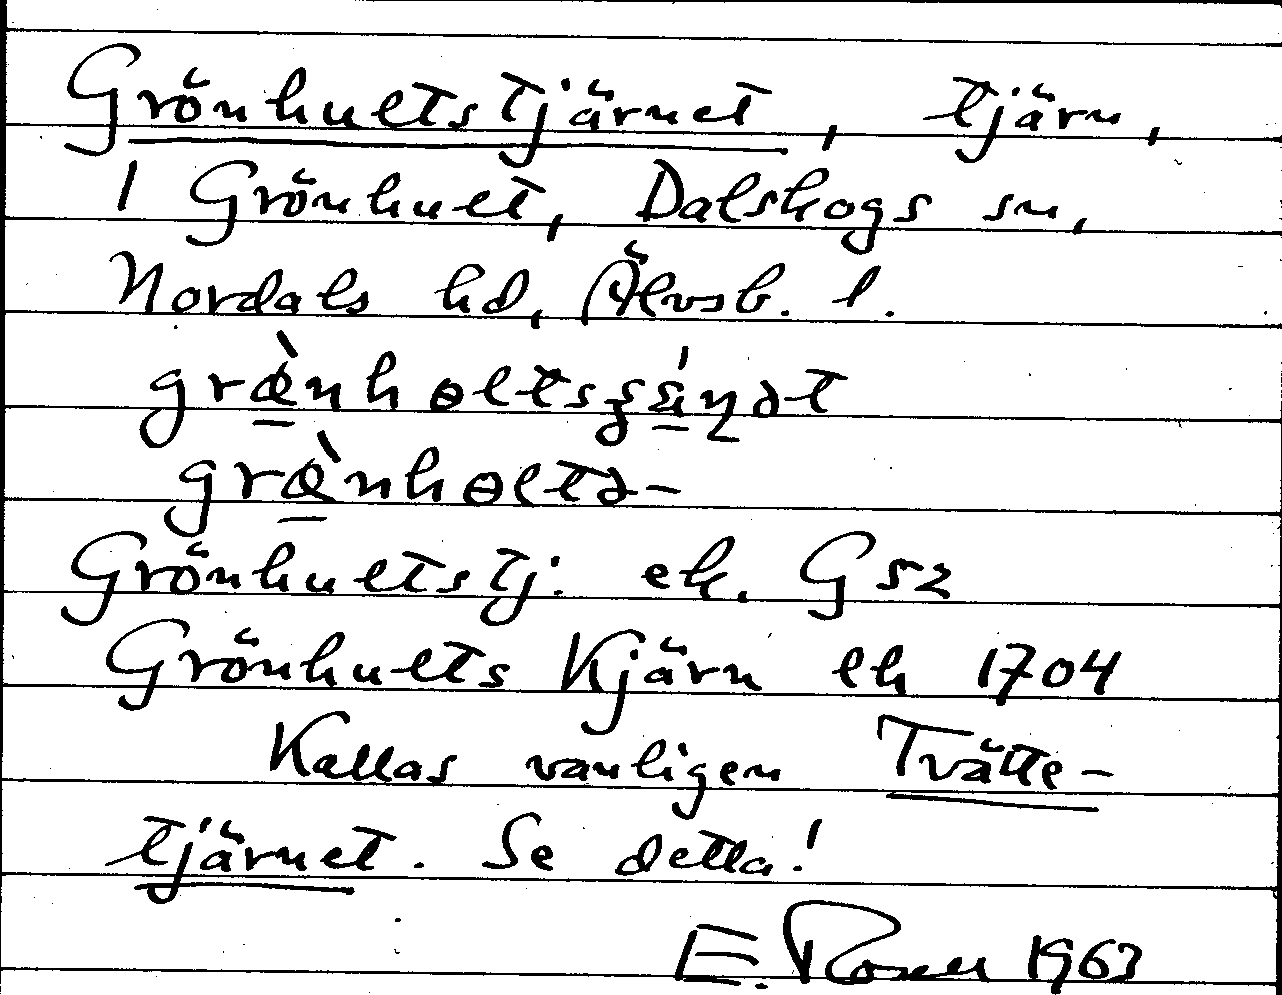 Grönhultstjärnet, tjärn,
i Grönhult, Dalskogs sn,
Nordals hd, Älvsb. l.
græ̀nhɵltsʂǽɳət
græ̀nhɵltə-
Grönhultstj. ek. G 52
Grönhults Kjärn lh 1704
Kallas vanligen Tvätte-
tjärnet. Se detta!
E. Rosell 1963